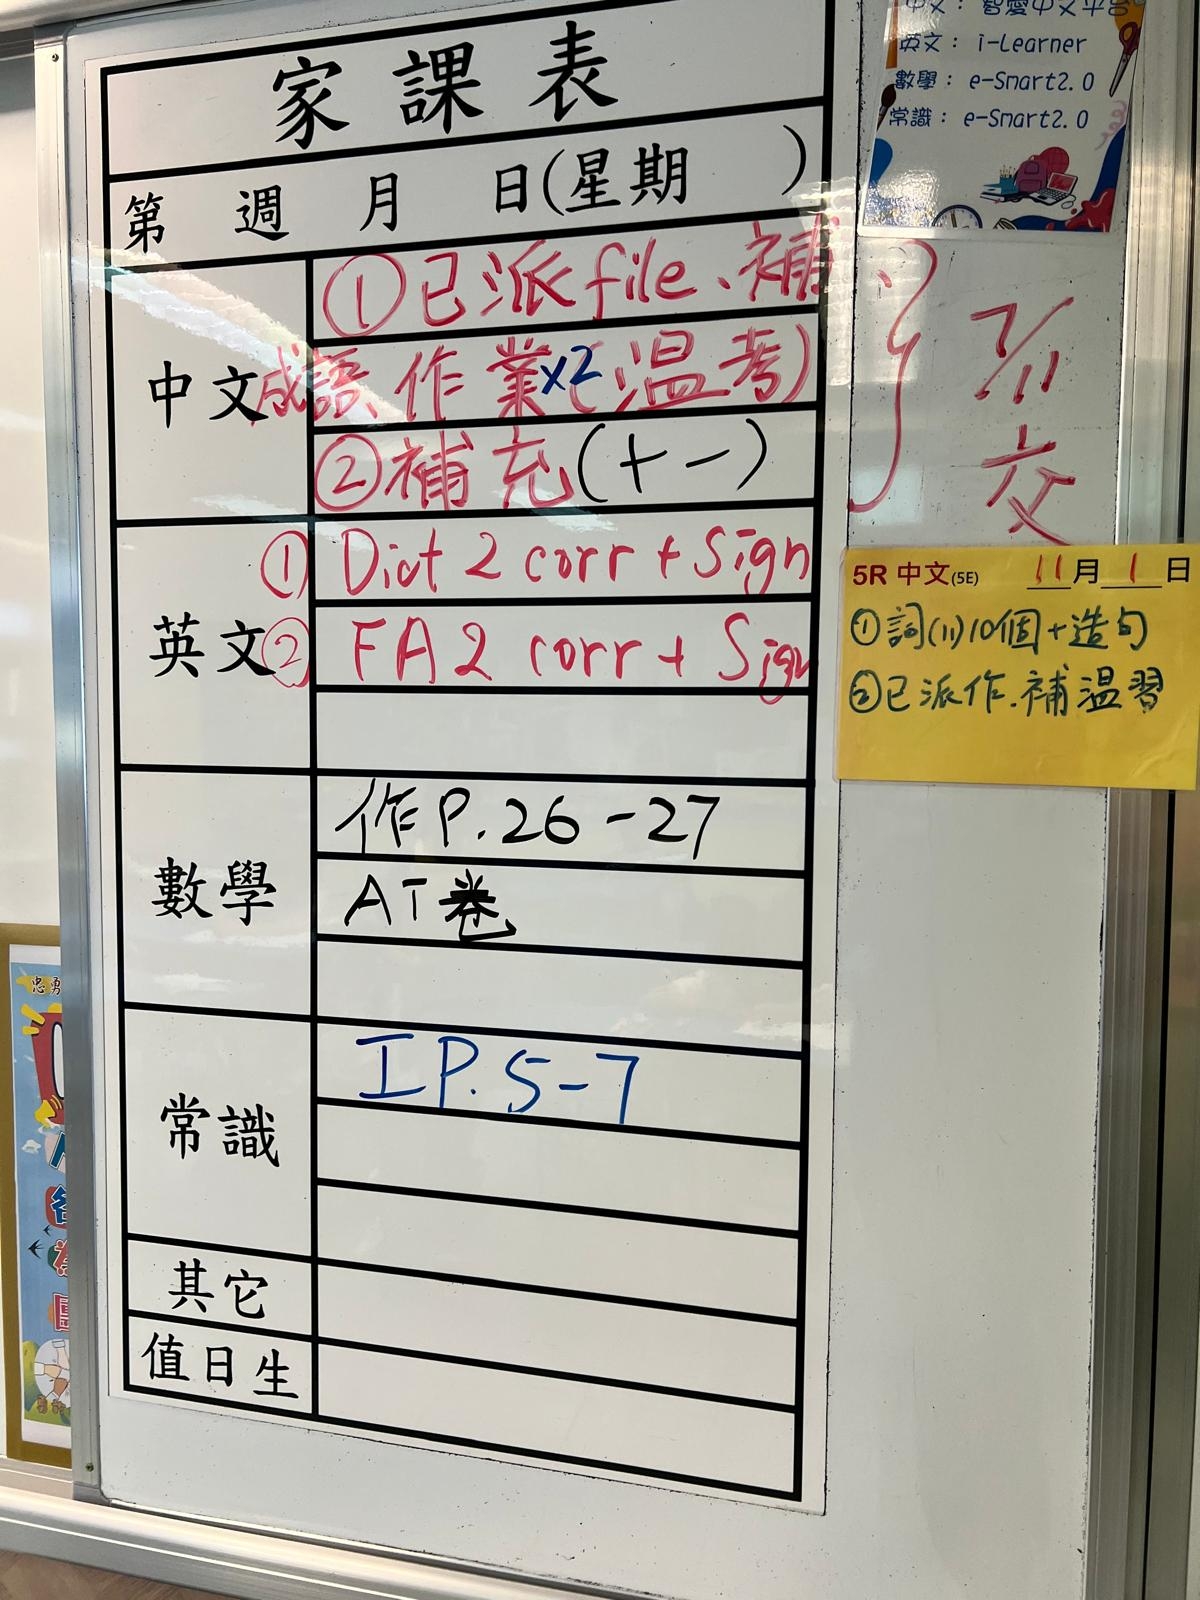 家課表
第 週 月 日(星期 )
中文
①已派file、補
成語、作業x2(溫考)
②補充(十一)
英文
① Dict 2 corr + Sign
② FA2 corr + Sign
數學
作P.26-27
AT卷
常識
I P.5-7
其它
值日生
中文： 智愛中文平台
英文： i-Learner
數學： e-Smart2.0
常識： e-Smart2.0
7/11
交
5R 中文(5E) 11月1日
①詞(11)10個+造句
②已派作.補溫習
忠勇